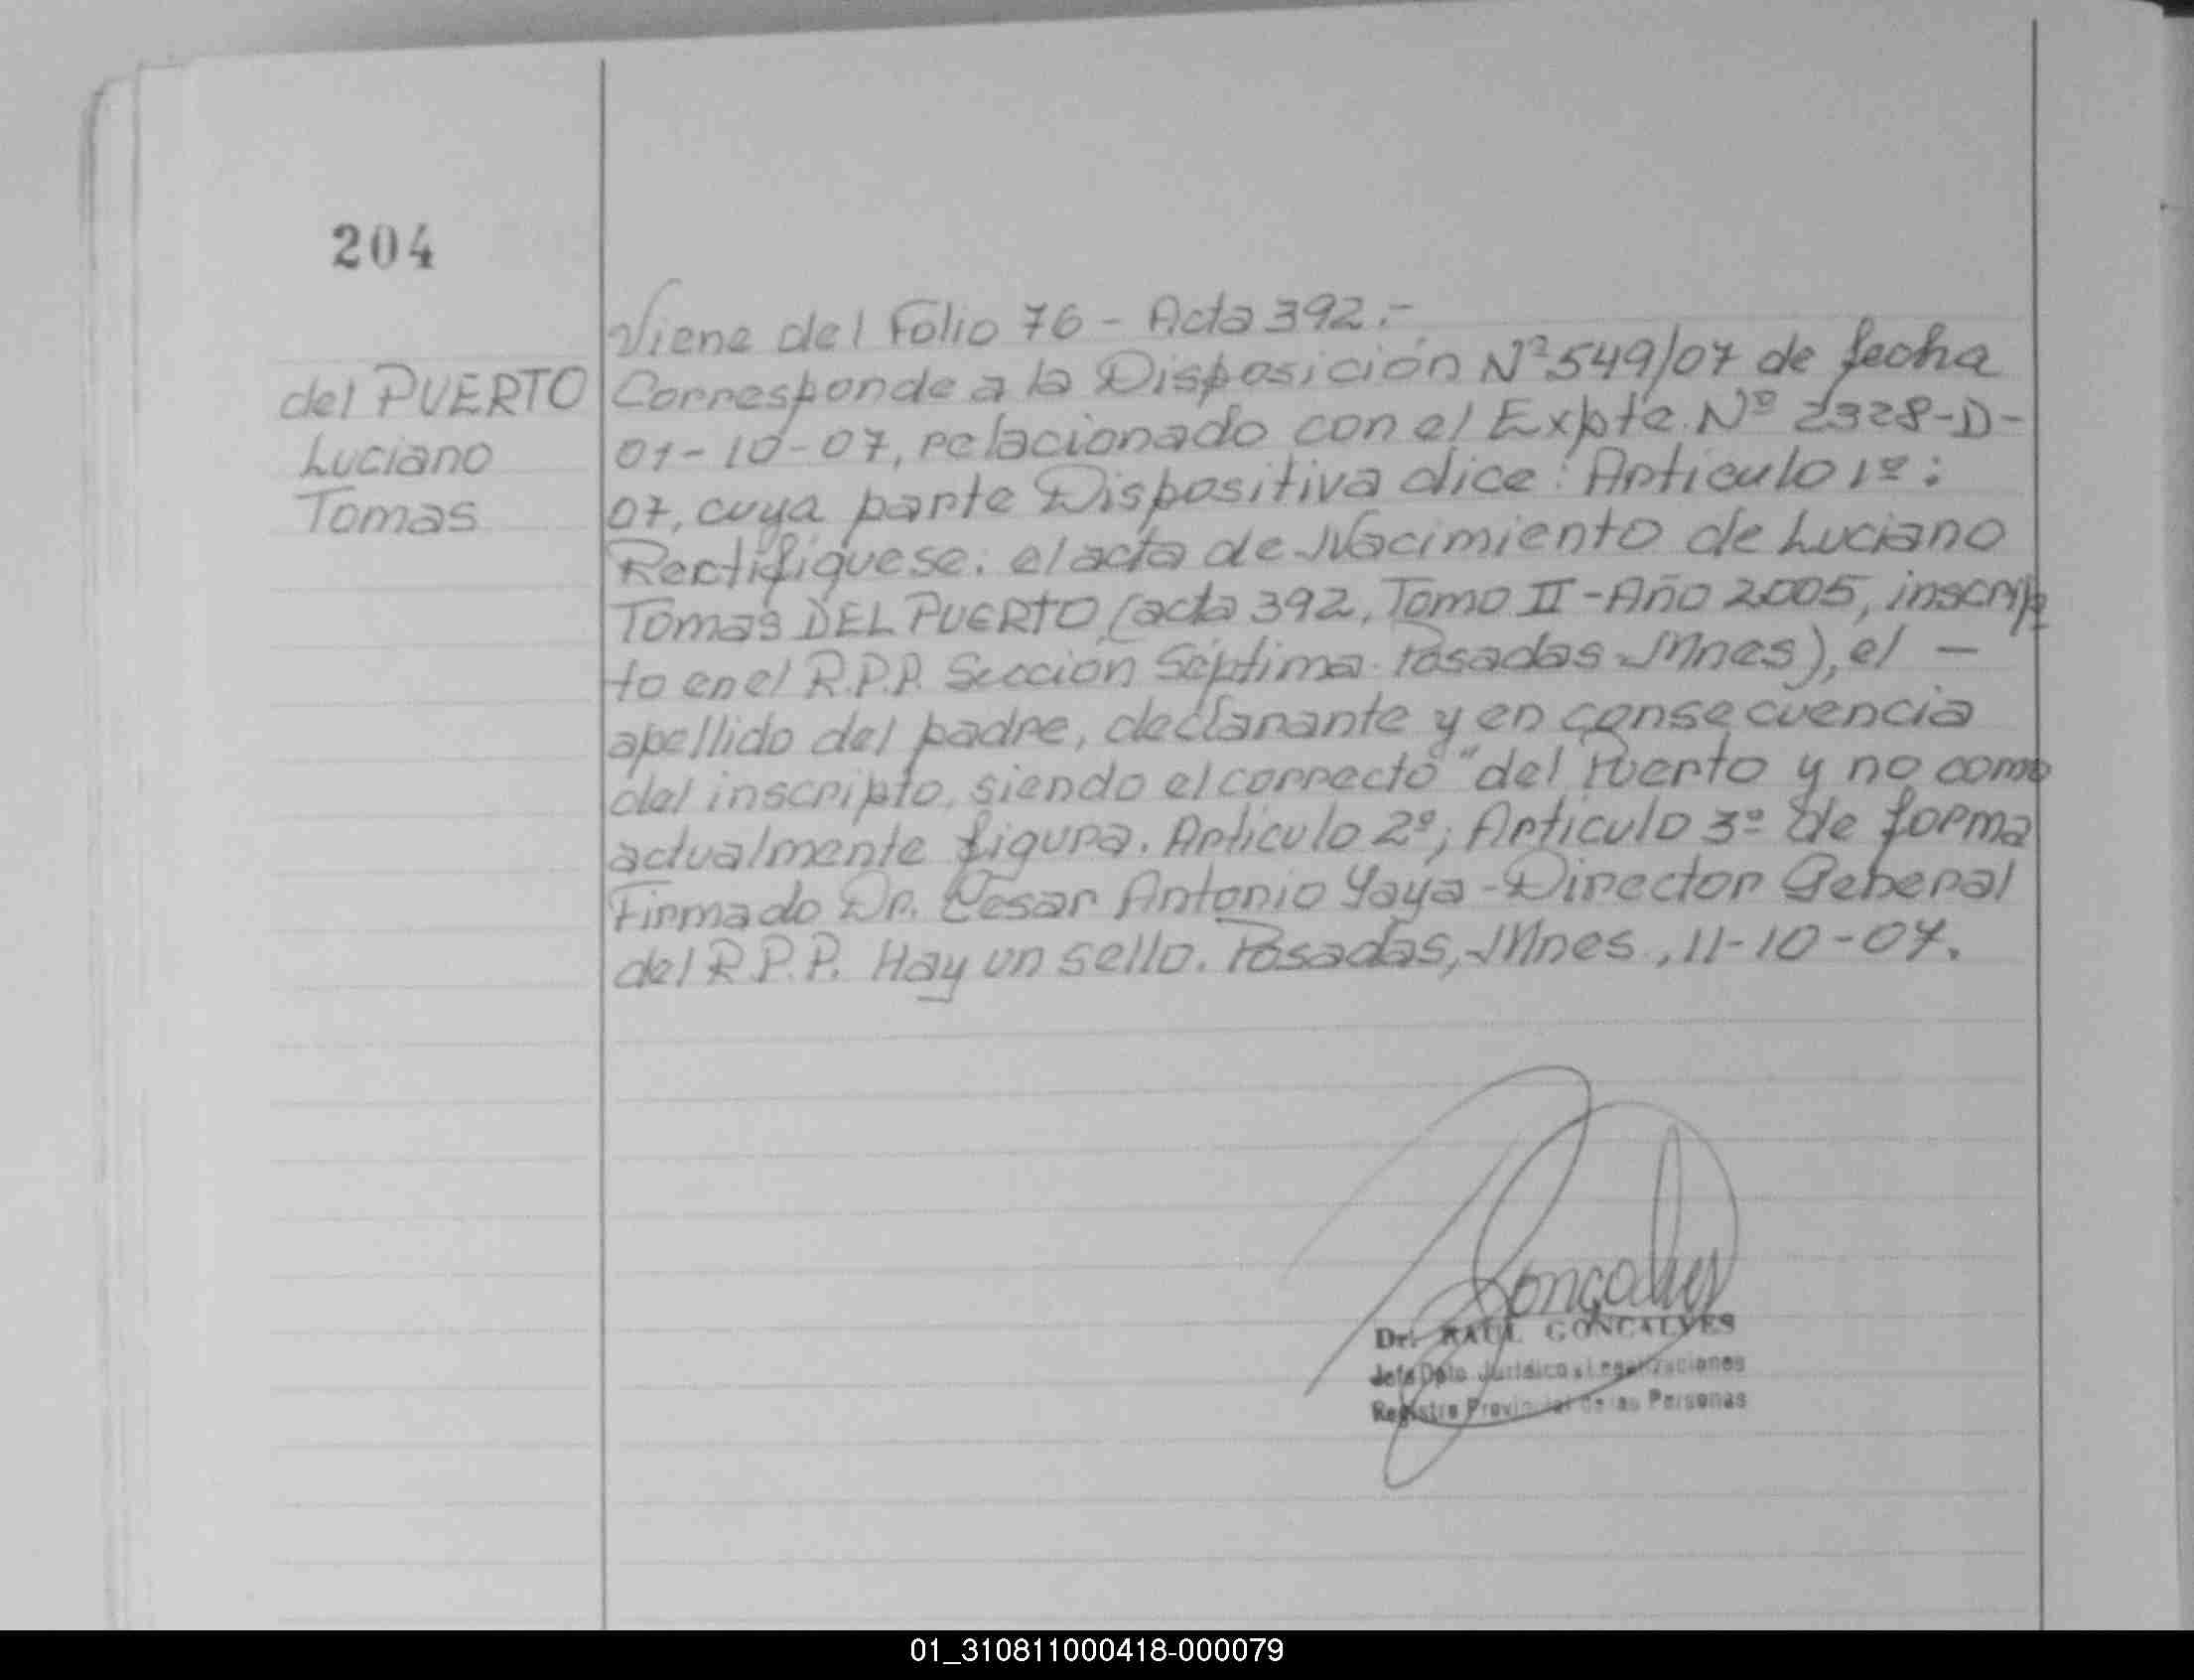 204
Viene del Folio 76 - Acta 392.-
del PUERTO
Luciano
Tomas
Corresponde a la Disposición Nº 549/07 de fecha
01-10-07, relacionado con el Expte. Nº 2328-D-
07, cuya parte Dispositiva dice: Articulo 1º:
Rectifiquese. el acta de Nacimiento de Luciano
Tomas DEL PUERTO (acta 392, Tomo II - Año 2005, inscrip
to en el R.P.P. Sección Séptima. Posadas Mnes), el -
apellido del padre, declarante y en consecuencia
del inscripto, siendo el correcto "del Puerto y no como
actualmente figura. Articulo 2º; Articulo 3º de forma
Firmado Dr. Cesar Antonio Yaya - Director General
del R.P.P. Hay un sello. Posadas, Mnes., 11-10-07.
Goncalves
Dr. RAUL GONCALVES
Jefe Dpto Jurídico y Legalizaciones
Registro Provincial de las Personas
01_310811000418-000079